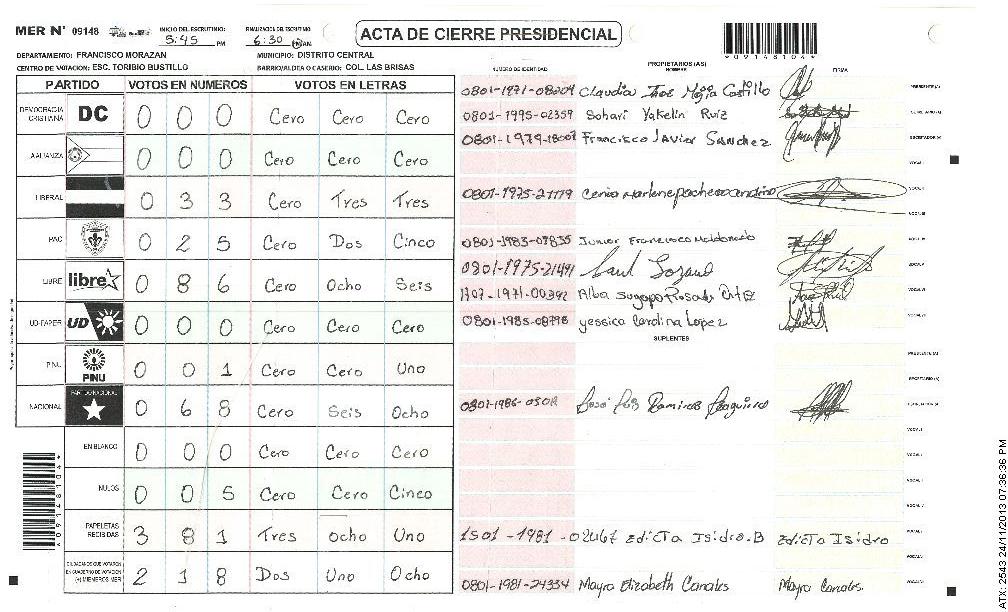 MER Nº 09148
INICIO DEL ESCRUTINIO: 5:45 PM
FINALIZACION DEL ESCRUTINIO 6:30
ACTA DE CIERRE PRESIDENCIAL
*09148104*
DEPARTAMENTO: FRANCISCO MORAZAN
MUNICIPIO: DISTRITO CENTRAL
CENTRO DE VOTACION: ESC. TORIBIO BUSTILLO
BARRIO/ALDEA O CASERIO: COL. LAS BRISAS
PARTIDO VOTOS EN NUMEROS VOTOS EN LETRAS
DEMOCRACIA CRISTIANA DC 0 0 0 Cero Cero Cero
AALIANZA 0 0 0 Cero Cero Cero
LIBERAL 0 3 3 Cero Tres Tres
PAC 0 2 5 Cero Dos Cinco
LIBRE libre 0 8 6 Cero Ocho Seis
UD-FAPER UD 0 0 0 Cero Cero Cero
PINU PINU 0 0 1 Cero Cero Uno
NACIONAL PARTIDO NACIONAL 0 6 8 Cero Seis Ocho
EN BLANCO 0 0 0 Cero Cero Cero
NULOS 0 0 5 Cero Cero Cinco
PAPELETAS RECIBIDAS 3 8 1 Tres ocho Uno
CIUDADANOS QUE VOTARON EN CUADERNO DE VOTACION (+) MIEMBROS MER 2 1 8 Dos Uno Ocho
*09148104*
NUMERO DE IDENTIDAD PROPIETARIOS (AS) NOMBRE FIRMA
Claudia Castillo PRESIDENTE (A)
0801-1995-02359 Sohari Yakelin Ruiz SECRETARIO (A)
Francisco Javier Sanchez ESCRUTADOR (A)
VOCAL I
0801-1975-21179
Junior Francisco Maldonado
0801-1975-21491 Saul Lozano
Alba
0801-1985-08798 yessica Carolina Lopez
SUPLENTES
PRESIDENTE (A)
SECRETARIO (A)
Ramires
1501-1981-02467 Edicta Isidro.B Edicta Isidro
0801-1981-24334 Mayra Elizabeth Canales Mayra Canales.
ATX. 2543 24/11/2013 07:36:36 PM